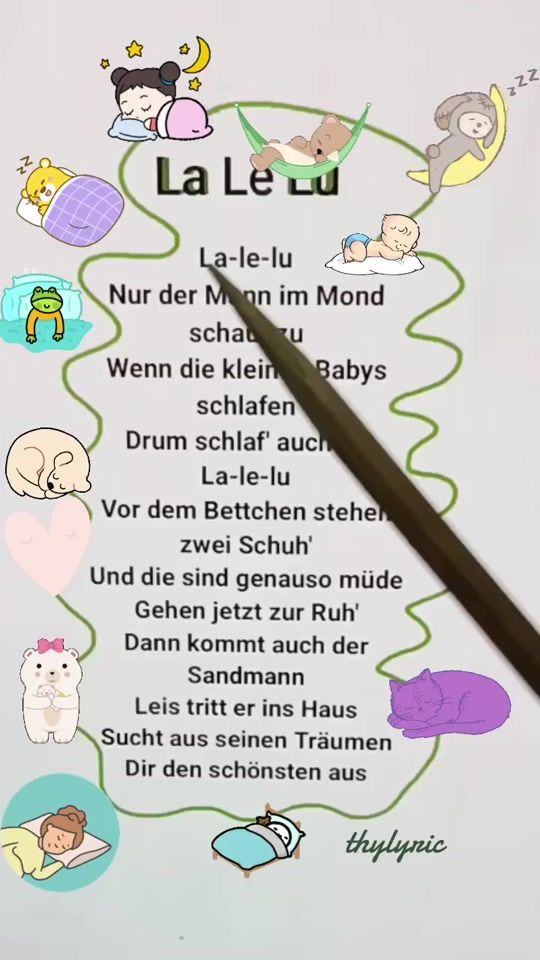 La Le Lu
La-le-lu
Nur der Mann im Mond
schaut zu
Wenn die kleinen Babys
schlafen
Drum schlaf' auch
La-le-lu
Vor dem Bettchen stehen
zwei Schuh'
Und die sind genauso müde
Gehen jetzt zur Ruh'
Dann kommt auch der
Sandmann
Leis tritt er ins Haus
Sucht aus seinen Träumen
Dir den schönsten aus
thylyric
zzz
zz